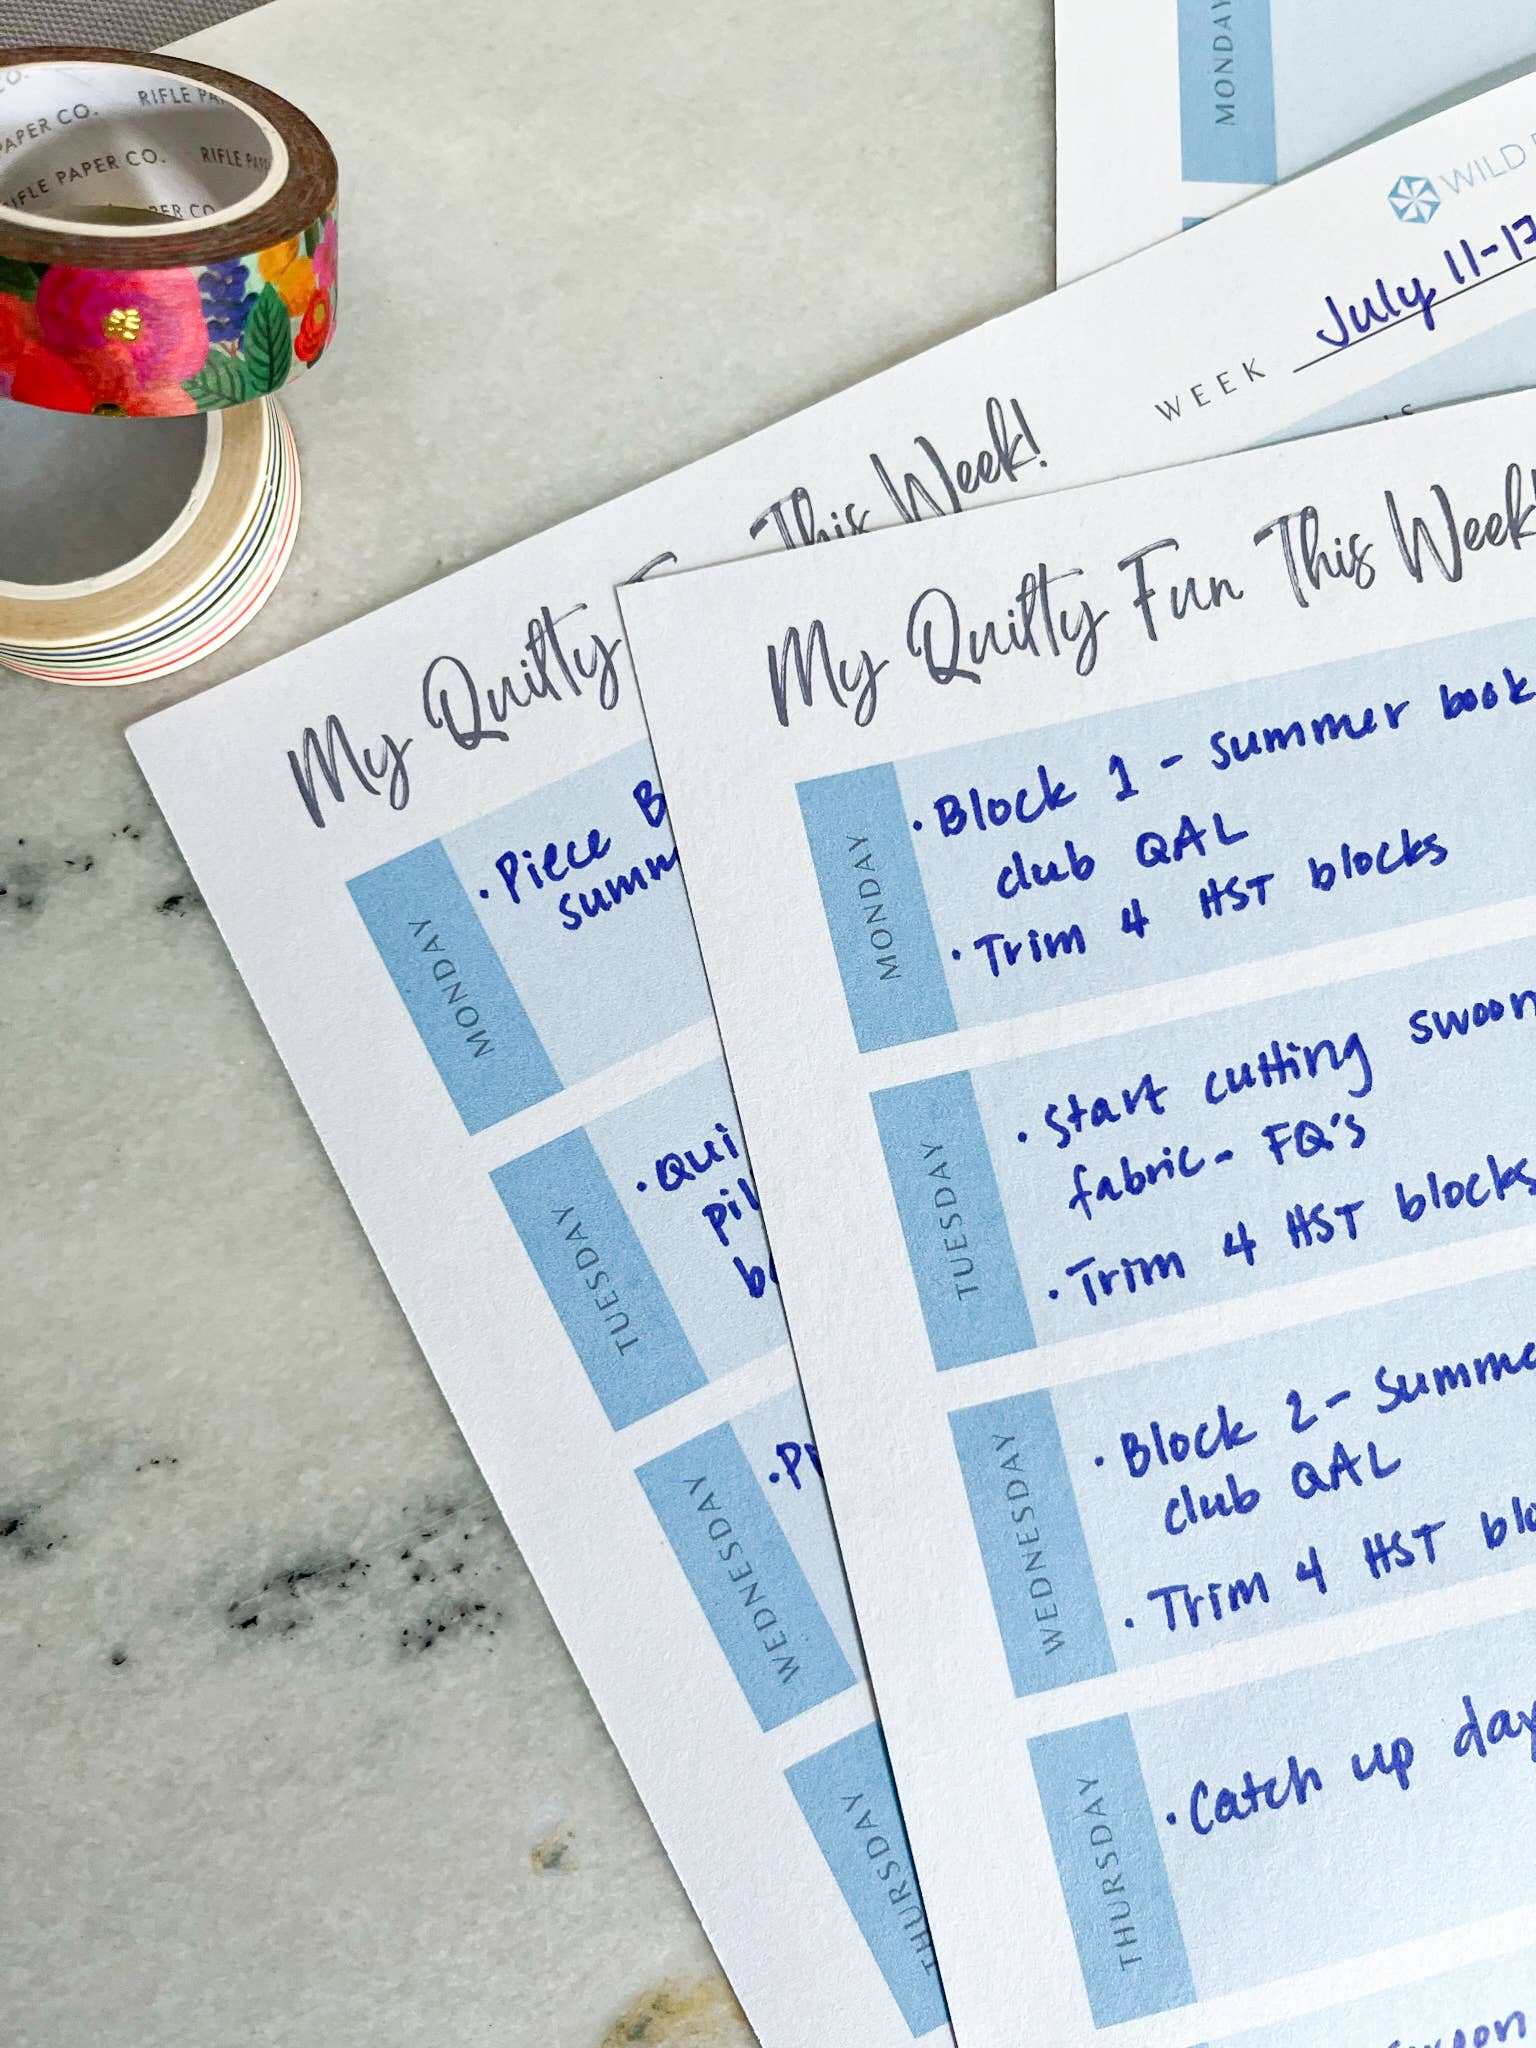 RIFLE PAPER CO.
RIFLE PAPER CO.
PAPER CO.
MONDAY
WILD
WEEK July 11-17
My Quilty This Week!
MONDAY
· Piece
TUESDAY
WEDNESDAY
THURSDAY
My Quilty Fun This Week!
MONDAY
· Block 1 - summer book
club QAL
· Trim 4 HST blocks
TUESDAY
· Start cutting swoon
fabric - FQ's
· Trim 4 HST blocks
WEDNESDAY
· Block 2 - Summer
club QAL
· Trim 4 HST
THURSDAY
· Catch up day